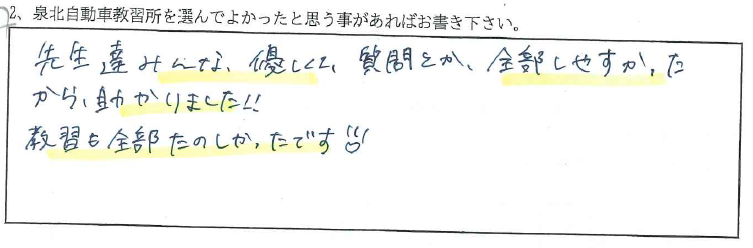 2、泉北自動車教習所を選んでよかったと思う事があればお書き下さい。
先生達みんな、優しくて、質問とか、全部しやすかった
から、助かりました!!
教習も全部たのしかったです